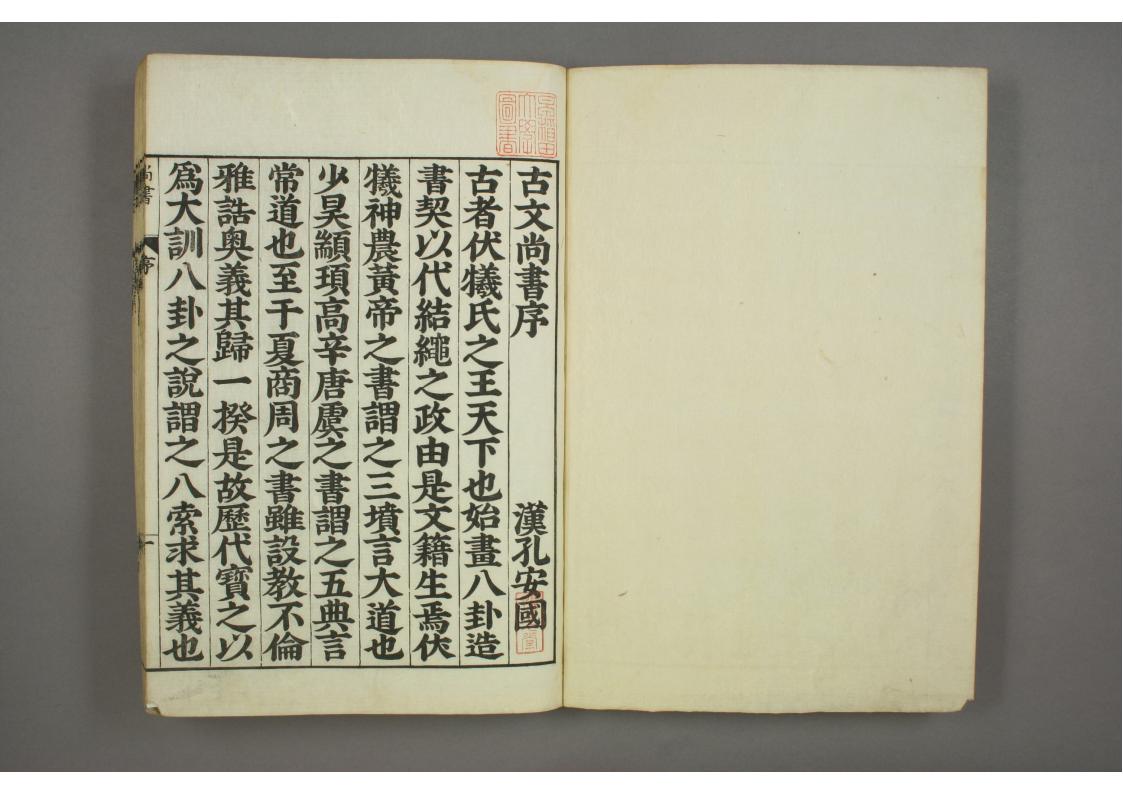 古文尚書序
漢孔安國
古者伏犧氏之王天下也始畫八卦造
書契以代結繩之政由是文籍生焉伏
犧神農黃帝之書謂之三墳言大道也
少昊顓頊高辛唐虞之書謂之五典言
常道也至于夏商周之書雖設教不倫
雅誥奧義其歸一揆是故歷代寶之以
爲大訓八卦之說謂之八索求其義也
尚書
序
一
早稲田
大學
圖書